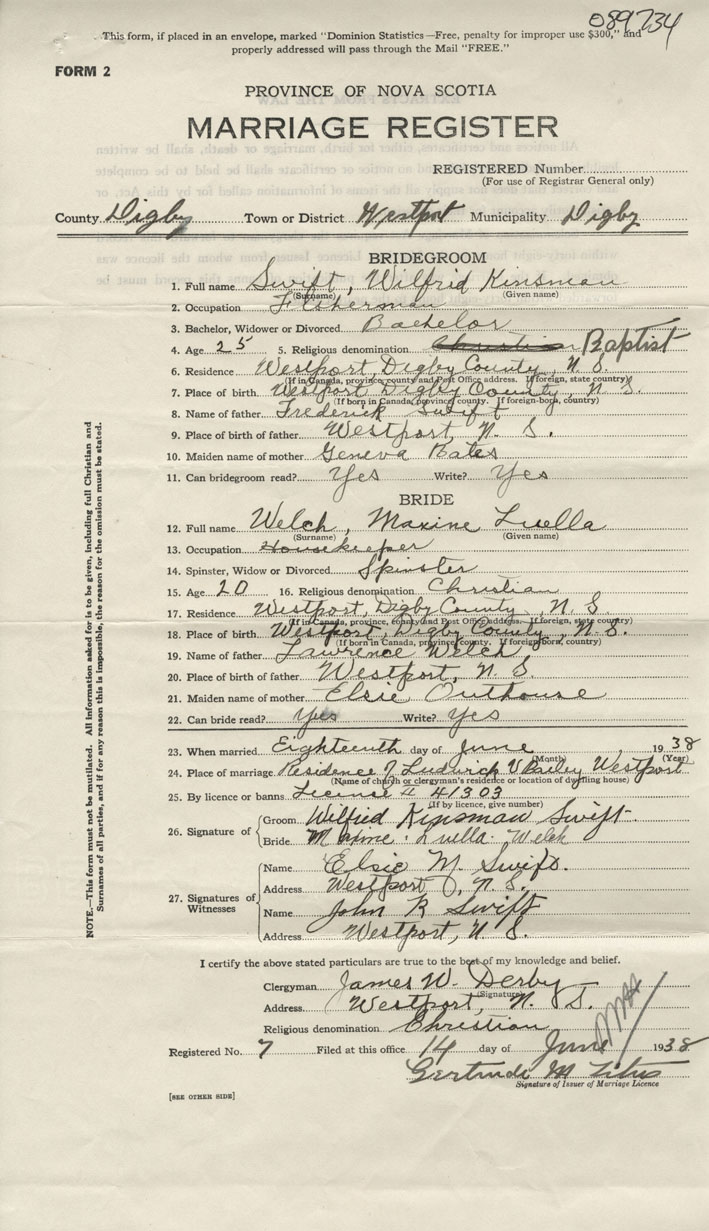 089734
This form, if placed in an envelope, marked "Dominion Statistics—Free, penalty for improper use $300," and
properly addressed will pass through the Mail "FREE."
FORM 2
PROVINCE OF NOVA SCOTIA
MARRIAGE REGISTER
REGISTERED Number
(For use of Registrar General only)
County Digby Town or District Westport Municipality Digby
BRIDEGROOM
1. Full name Swift, Wilfrid Kinsman
(Surname) (Given name)
2. Occupation Fisherman
3. Bachelor, Widower or Divorced Bachelor
4. Age 25 5. Religious denomination Christian Baptist
6. Residence Westport, Digby County, N. S.
(If in Canada, province, county and Post Office address. If foreign, state country)
7. Place of birth Westport Digby County, N. S.
(If born in Canada, province, county. If foreign-born, country)
8. Name of father Frederick Swift
9. Place of birth of father Westport, N. S.
10. Maiden name of mother Geneva Bates
11. Can bridegroom read? Yes Write? Yes
BRIDE
12. Full name Welch, Maxine Luella
(Surname) (Given name)
13. Occupation Housekeeper
14. Spinster, Widow or Divorced Spinster
15. Age 20 16. Religious denomination Christian
17. Residence Westport, Digby County, N. S.
(If in Canada, province, county and Post Office address. If foreign, state country)
18. Place of birth Westport, Digby County, N. S.
(If born in Canada, province, county. If foreign-born, country)
19. Name of father Lawrence Welch
20. Place of birth of father Westport, N. S.
21. Maiden name of mother Elsie Outhouse
22. Can bride read? Yes Write? Yes
23. When married Eighteenth day of June, 1938
(Month) (Year)
24. Place of marriage Residence of Ludwick V Bailey Westport
(Name of church or clergyman's residence or location of dwelling house)
25. By licence or banns License # 41303
(If by licence, give number)
26. Signature of
Groom Wilfred Kinsman Swift
Bride Maxine Luella Welch
27. Signatures of Witnesses
Name Elsie M Swift.
Address Westport, N. S.
Name John R Swift
Address Westport, N. S.
I certify the above stated particulars are true to the best of my knowledge and belief.
Clergyman James W. Derby
(Signature)
Address Westport, N. S.
Religious denomination Christian
Registered No. 7 Filed at this office 14 day of June 1938
Gertrude M Titus
Signature of Issuer of Marriage Licence
[SEE OTHER SIDE]
NOTE.—This form must not be mutilated. All information asked for is to be given, including full Christian and
Surnames of all parties, and if for any reason this is impossible, the reason for the omission must be stated.